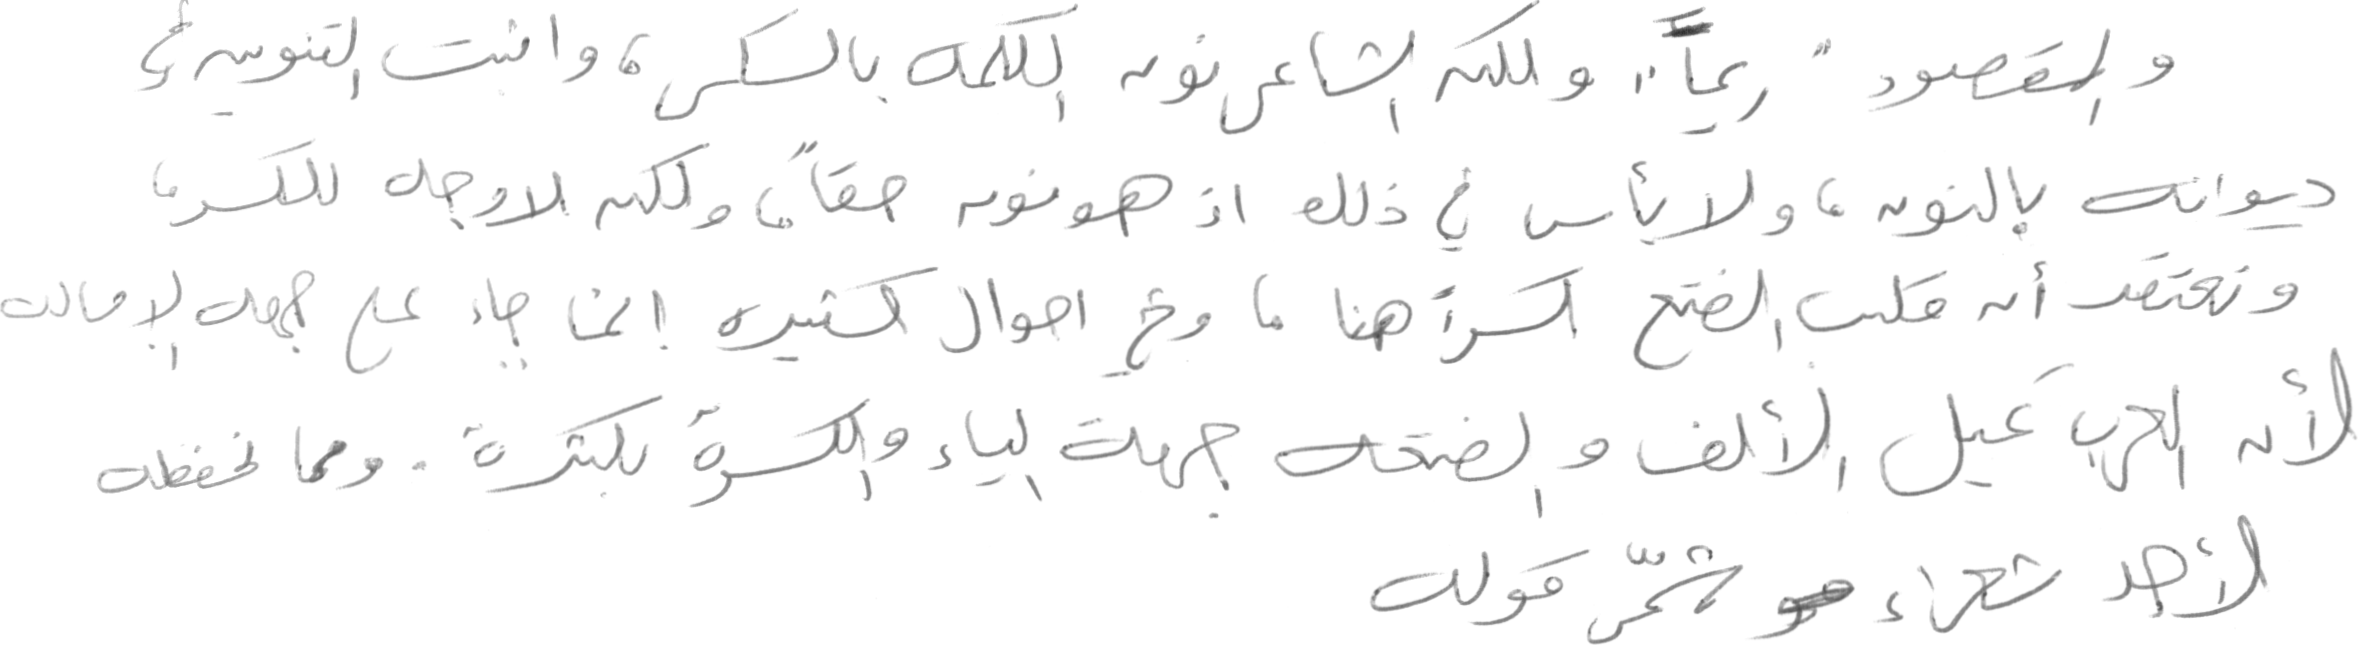 والمقصود "ريماً" ولكن الشاعر نون الكلمة بالكسر، واثبت التنوين في
ديوانه بالنون، ولا بأس في ذلك اذ هو نون حقاً، ولكن الاوجه للكسر،
ونعتقد أن قلب الفتح كسراً هنا، وفي احوال كثيرة إنما جاء على جهة الإمالة
لأن العرب تميل الألف والفتحة جهة الياء والكسرة بكثرة. ومما نحفظه
لأحد شعراء شمّر قوله